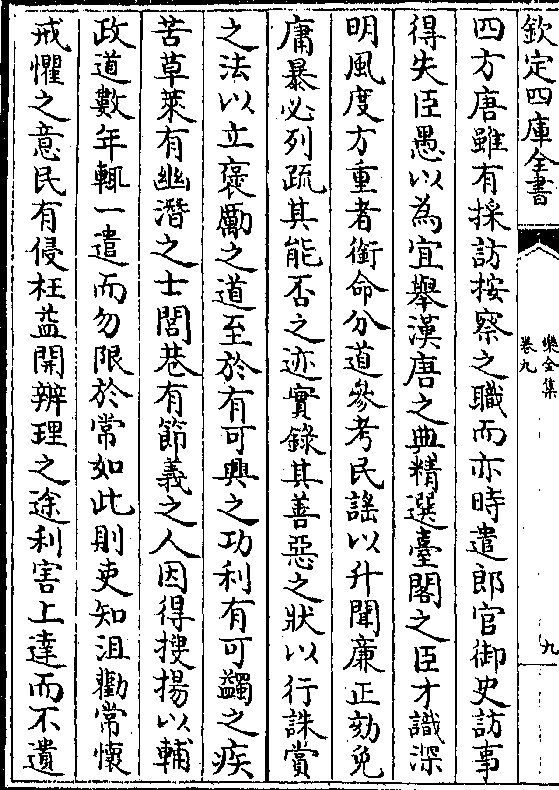 欽定四庫全書
樂全集
卷九
九
四方唐雖有採訪按察之職而亦時遣郎官御史訪事
得失臣愚以為宜舉漢唐之典精選臺閣之臣才識深
明風度方重者銜命分道參考民謠以升聞廉正劾免
庸暴必列疏其能否之迹實錄其善惡之狀以行誅賞
之法以立褒勵之道至於有可興之功利有可蠲之疾
苦草萊有幽潛之士閭巷有節義之人因得搜揚以輔
政道數年輒一遣而勿限於常如此則吏知沮勸常懷
戒懼之意民有侵枉益開辨理之途利害上達而不遺